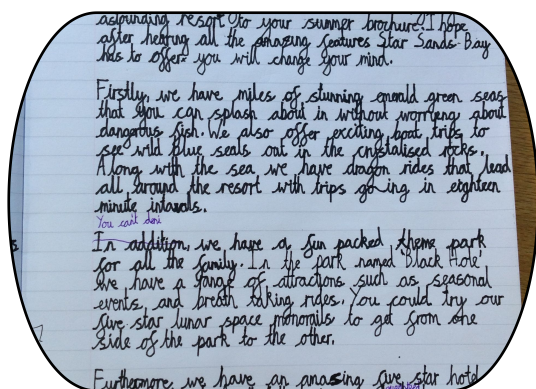 astounding resort to your summer brochure. I hope
after hearing all the amazing features Star Sands Bay
has to offer you will change your mind.
Firstly, we have miles of stunning emerald green seas
that you can splash about in without worrying about
dangerous fish. We also offer exciting boat trips to
see wild blue seals out in the crystalised rocks.
Along with the sea we have dragon rides that lead
all around the resort with trips going in eighteen
minute intavals.
You can't
In addition, we have a fun packed theme park
for all the family. In the park named 'Black Hole'
we have a range of attractions such as seasonal
events, and breath taking rides. You could try our
five star lunar space monorails to get from one
side of the park to the other.
Furthermore, we have an amasing five star hotel